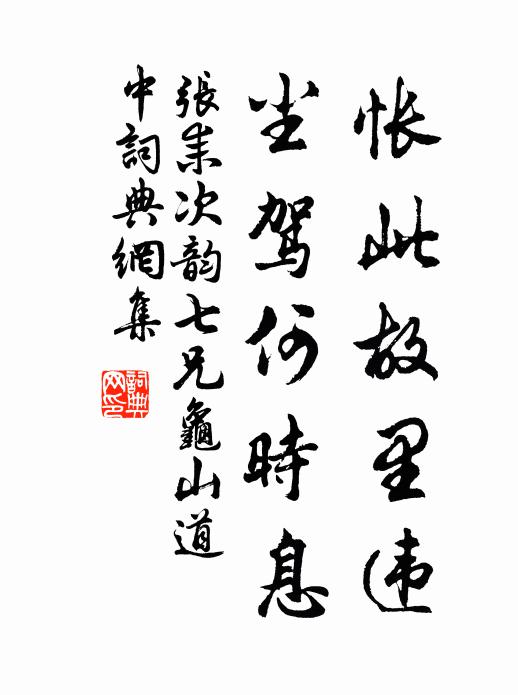 怅此故里违
尘驾何時息
張耒次韵七兄龜山道
中詞典網集
詞典
网印